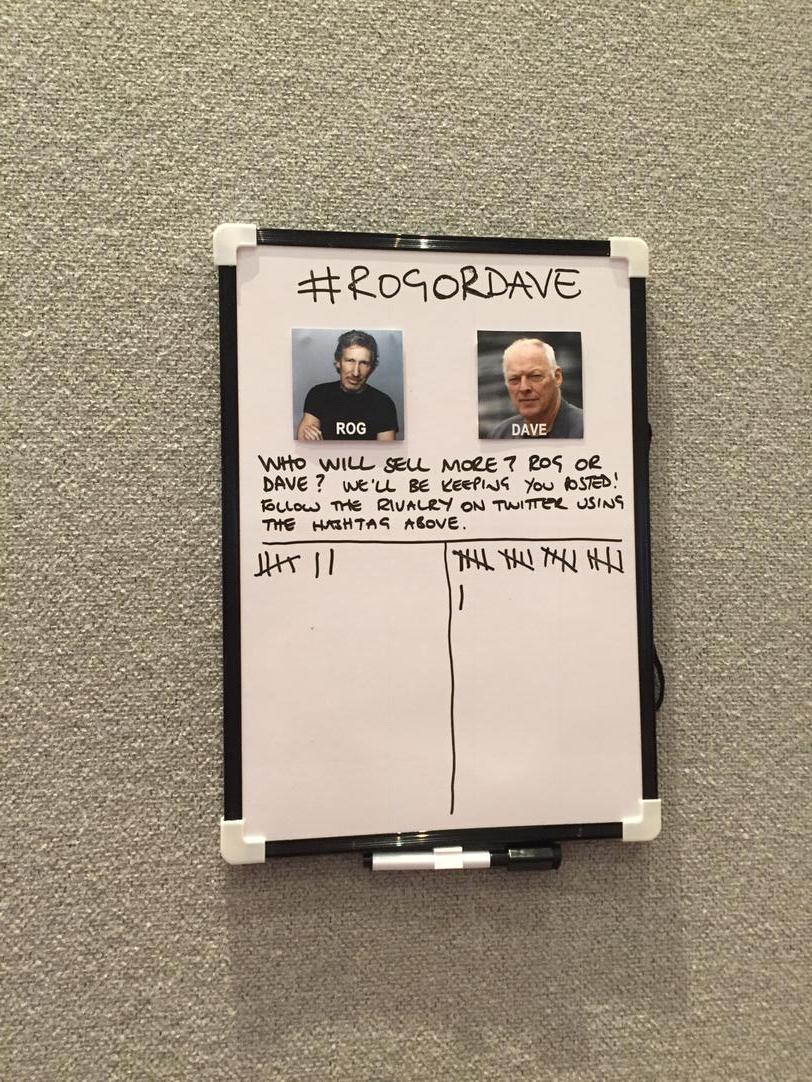 #ROGORDAVE
ROG
DAVE
WHO WILL SELL MORE? ROG OR
DAVE? WE'LL BE KEEPING YOU POSTED!
FOLLOW THE RIVALRY ON TWITTER USING
THE HASHTAG ABOVE.